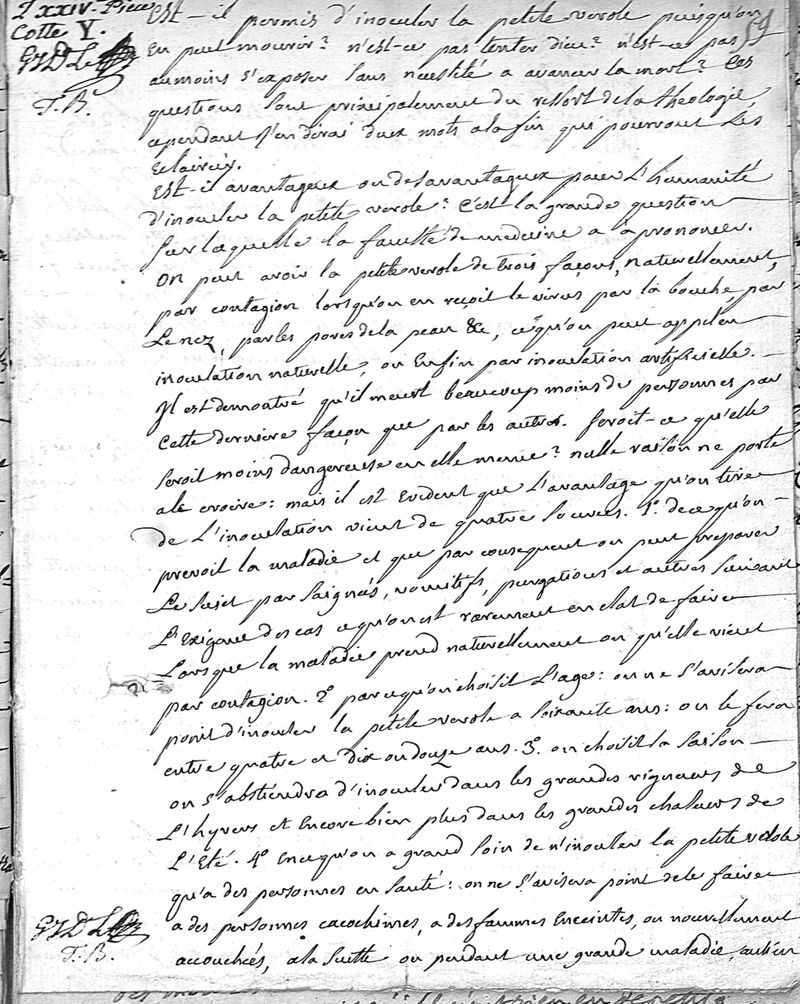 Lxxiv. Piece
Cotte Y.
59
T. B.
Est-il permis d'inoculer la petite verole puisqu'on
En peut mourir? n'est-ce pas tenter dieu? n'est-ce pas
aumoins s'exposer sans necessité a avancer la mort? Ces
questions sont principalement du ressort de la theologie,
cependant j'en dirai deux mots a la fin qui pourront les
Eclaircir.
Est-il avantageux ou desavantageux pour L'humanité
d'inoculer la petite verole? C'est la grande question
sur laquelle la faculté de medecine a à prononcer.
On peut avoir la petite verole de trois façons, naturellement,
par contagion lorsqu'on en reçoit le virus par la bouche, par
Le nez, par les pores de la peau &c, ce qu'on peut appeler
inoculation naturelle, ou Enfin par inoculation artificielle.
Il est demontré qu'il meurt beaucoup moins de personnes par
Cette derniere façon que par les autres. seroit-ce qu'elle
seroit moins dangereuse en elle meme? nulle raison ne porte
a le croire: mais il est Evident que L'avantage qu'on tire
de L'inoculation vient de quatre sources. 1º. de ce qu'on
prevoit la maladie et que par consequent on peut preparer
Le sujet par saignées, vomitifs, purgations et autres suivant
L'Exigence des cas ce qu'on est rarement en etat de faire
Lorsque la maladie prend naturellement ou qu'elle vient
par contagion. 2º parcequ'on choisit L'age: on ne s'avisera
point d'inoculer la petite verole a soixante ans: on le fera
entre quatre et dix ou douze ans. 3º. on choisit la saison
on s'abstiendra d'inoculer dans les grandes rigueurs de
L'hyvers et Encore bien plus dans les grandes chaleurs de
L'Eté. 4º Ence qu'on a grand soin de n'inoculer la petite verole
qu'a des personnes en santé: on ne s'avisera point de le faire
a des personnes cacochimes, a des fammes Enceintes, ou nouvellement
accouchées, a la suitte ou pendant une grande maladie, au lieu
T. B.